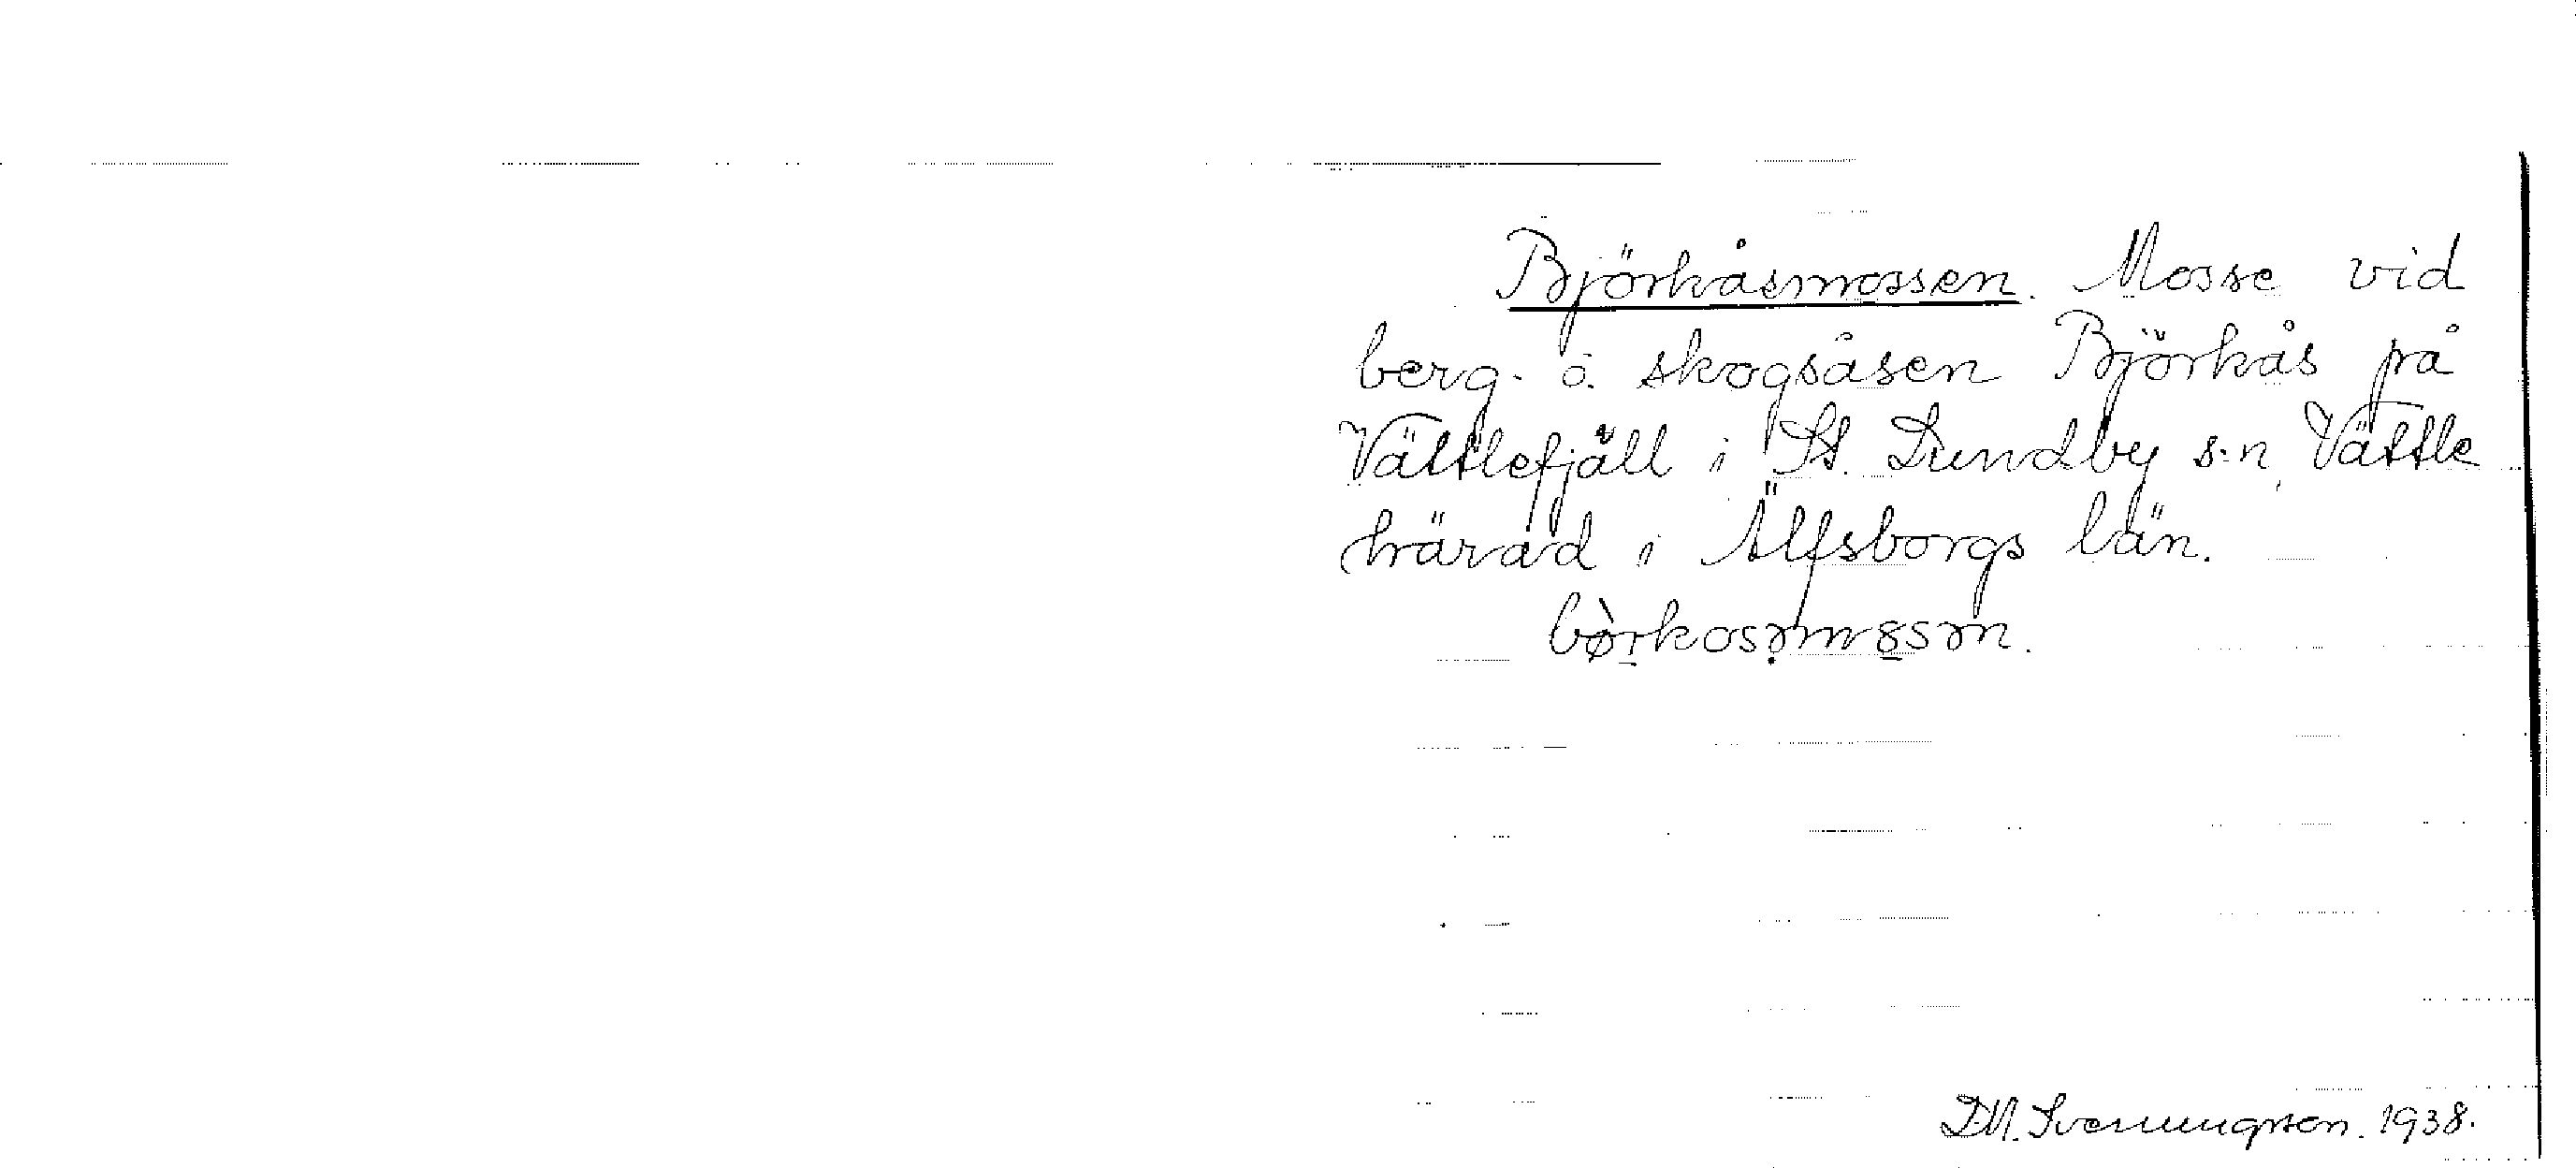 Björkåsmossen. Mosse vid
berg- å skogsåsen Björkås på
Vättlefjäll i St. Lundby s:n, Vättle
härad i Älfsborgs län.
1938.